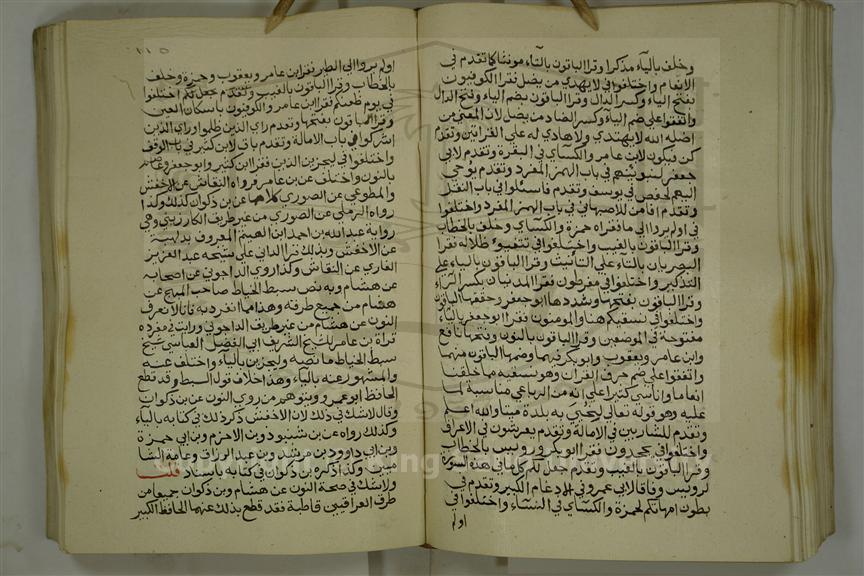 وخلف بالياء مذكرا وقرا الباقون بالتاء مونثا كما تقدم في
الانعام واختلفوا في لا يهدي من يضل فقرا الكوفيون
بفتح الياء وكسر الدال وقرا الباقون بضم الياء وفتح الدال
واتفقوا على ضم الياء وكسر الضاد من يضل لان المعنى من
اضله الله لا يهتدي ولا هادي له على القراتين وتقدم
كن فيكون لابن عامر والكسائي في البقرة وتقدم لابي
جعفر لنبوئنهم في باب الهمز المفرد وتقدم يوحي
اليهم لحفص في يوسف وتقدم فاسئلوا في باب النقل
وتقدم افامن للاصبهاني في باب الهمز المفرد واختلفوا
في اولم يروا الى ما فقراه حمزة والكسائي وخلف بالخطاب
وقرا الباقون بالغيب واختلفوا في تتفيؤ ظلاله فقرا
البصريان بالتاء على التأنيث وقرا الباقون بالياء على
التذكير واختلفوا في مفرطون فقرا المدنيان بكسر الراء
وقرا الباقون بفتحها وشددها ابو جعفر وخففها الباقون
واختلفوا في نسقيكم هنا والمومنون فقرا ابو جعفر بالتاء
مفتوحة في الموضعين وقرا الباقون بالنون وفتحها نافع
وابن عامر ويعقوب وابو بكر فيهما وضمها الباقون منهما
واتفقوا على ضم حرف الفرقان وهو نسقيه مما خلقنا
انعاما واناسي كثيرا على انه من الرباعي مناسبة لما
عليه وهو قوله تعالى لنحيي به بلدة ميتا والله اعلم
وتقدم للشاربين في الامالة وتقدم يعرشون في الاعراف
واختلفوا في يجحدون فقرا ابو بكر ورويس بالخطاب
وقرا الباقون بالغيب وتقدم جعل لكم كل ما في هذه السورة
لرويس وفاقا لابي عمرو في الادغام الكبير وتقدم في
بطون امهاتكم لحمزة والكسائي في النساء واختلفوا في
اولم
١١٥
اولم يروا الى الطير فقرا ابن عامر ويعقوب وحمزة وخلف
بالخطاب وقرا الباقون بالغيب وتقدم جعل لكم اختلفوا
في يوم ظعنكم فقرا ابن عامر والكوفيون باسكان العين
وقرا الباقون بفتحها وتقدم راى الذين ظلموا وراى الذين
اشركوا في باب الامالة وتقدم باق لابن كثير في باب الوقف
واختلفوا في ليجزين الذين فقرا ابن كثير وابو جعفر وعاصم
بالنون واختلف عن بن عامر فرواه النقاش عن الاخفش
والمطوعي عن الصوري كلاهما عن بن ذكوان كذلك وكذا
رواه الرملي عن الصوري من غير طريق الكارزيني وهي
رواية عبد الله بن احمد بن الهيثم المعروف بدلبة
عن الاخفش وبذلك قرا الداني على شيخه عبد العزيز
الفارسي عن النقاش وكذا روى الداجوني عن اصحابه
عن هشام وبه نص سبط الخياط صاحب المبهج عن
هشام من جميع طرقه وهذا مما انفرد به فانا لا نعرف
النون عن هشام من غير طريق الداجوني ورايت في مفرده
قراة بن عامر للشيخ الشريف ابي الفضل العباسي شيخ
سبط الخياط ما نصه وليجزين بالياء واختلف عنه
والمشهور عنه بالياء وهذا خلاف قول السبط وقد قطع
الحافظ ابو عمرو بتوهيم من روى النون عن بن ذكوان
وقال لاشك في ذلك لان الاخفش ذكر ذلك في كتابه بالياء
وكذلك رواه عن بن شنبوذ وبن الاخرم وبن ابي حمزة
وبن ابي داوود وبن مرشد وبن عبد الرزاق وعامة الشا
ميين وكذا ذكره بن ذكوان في كتابه باسناده قلت
ولا شك في صحة النون عن هشام وبن ذكوان جميعا من
طرق العراقيين قاطبة فقد قطع بذلك عنهما الحافظ الكبير